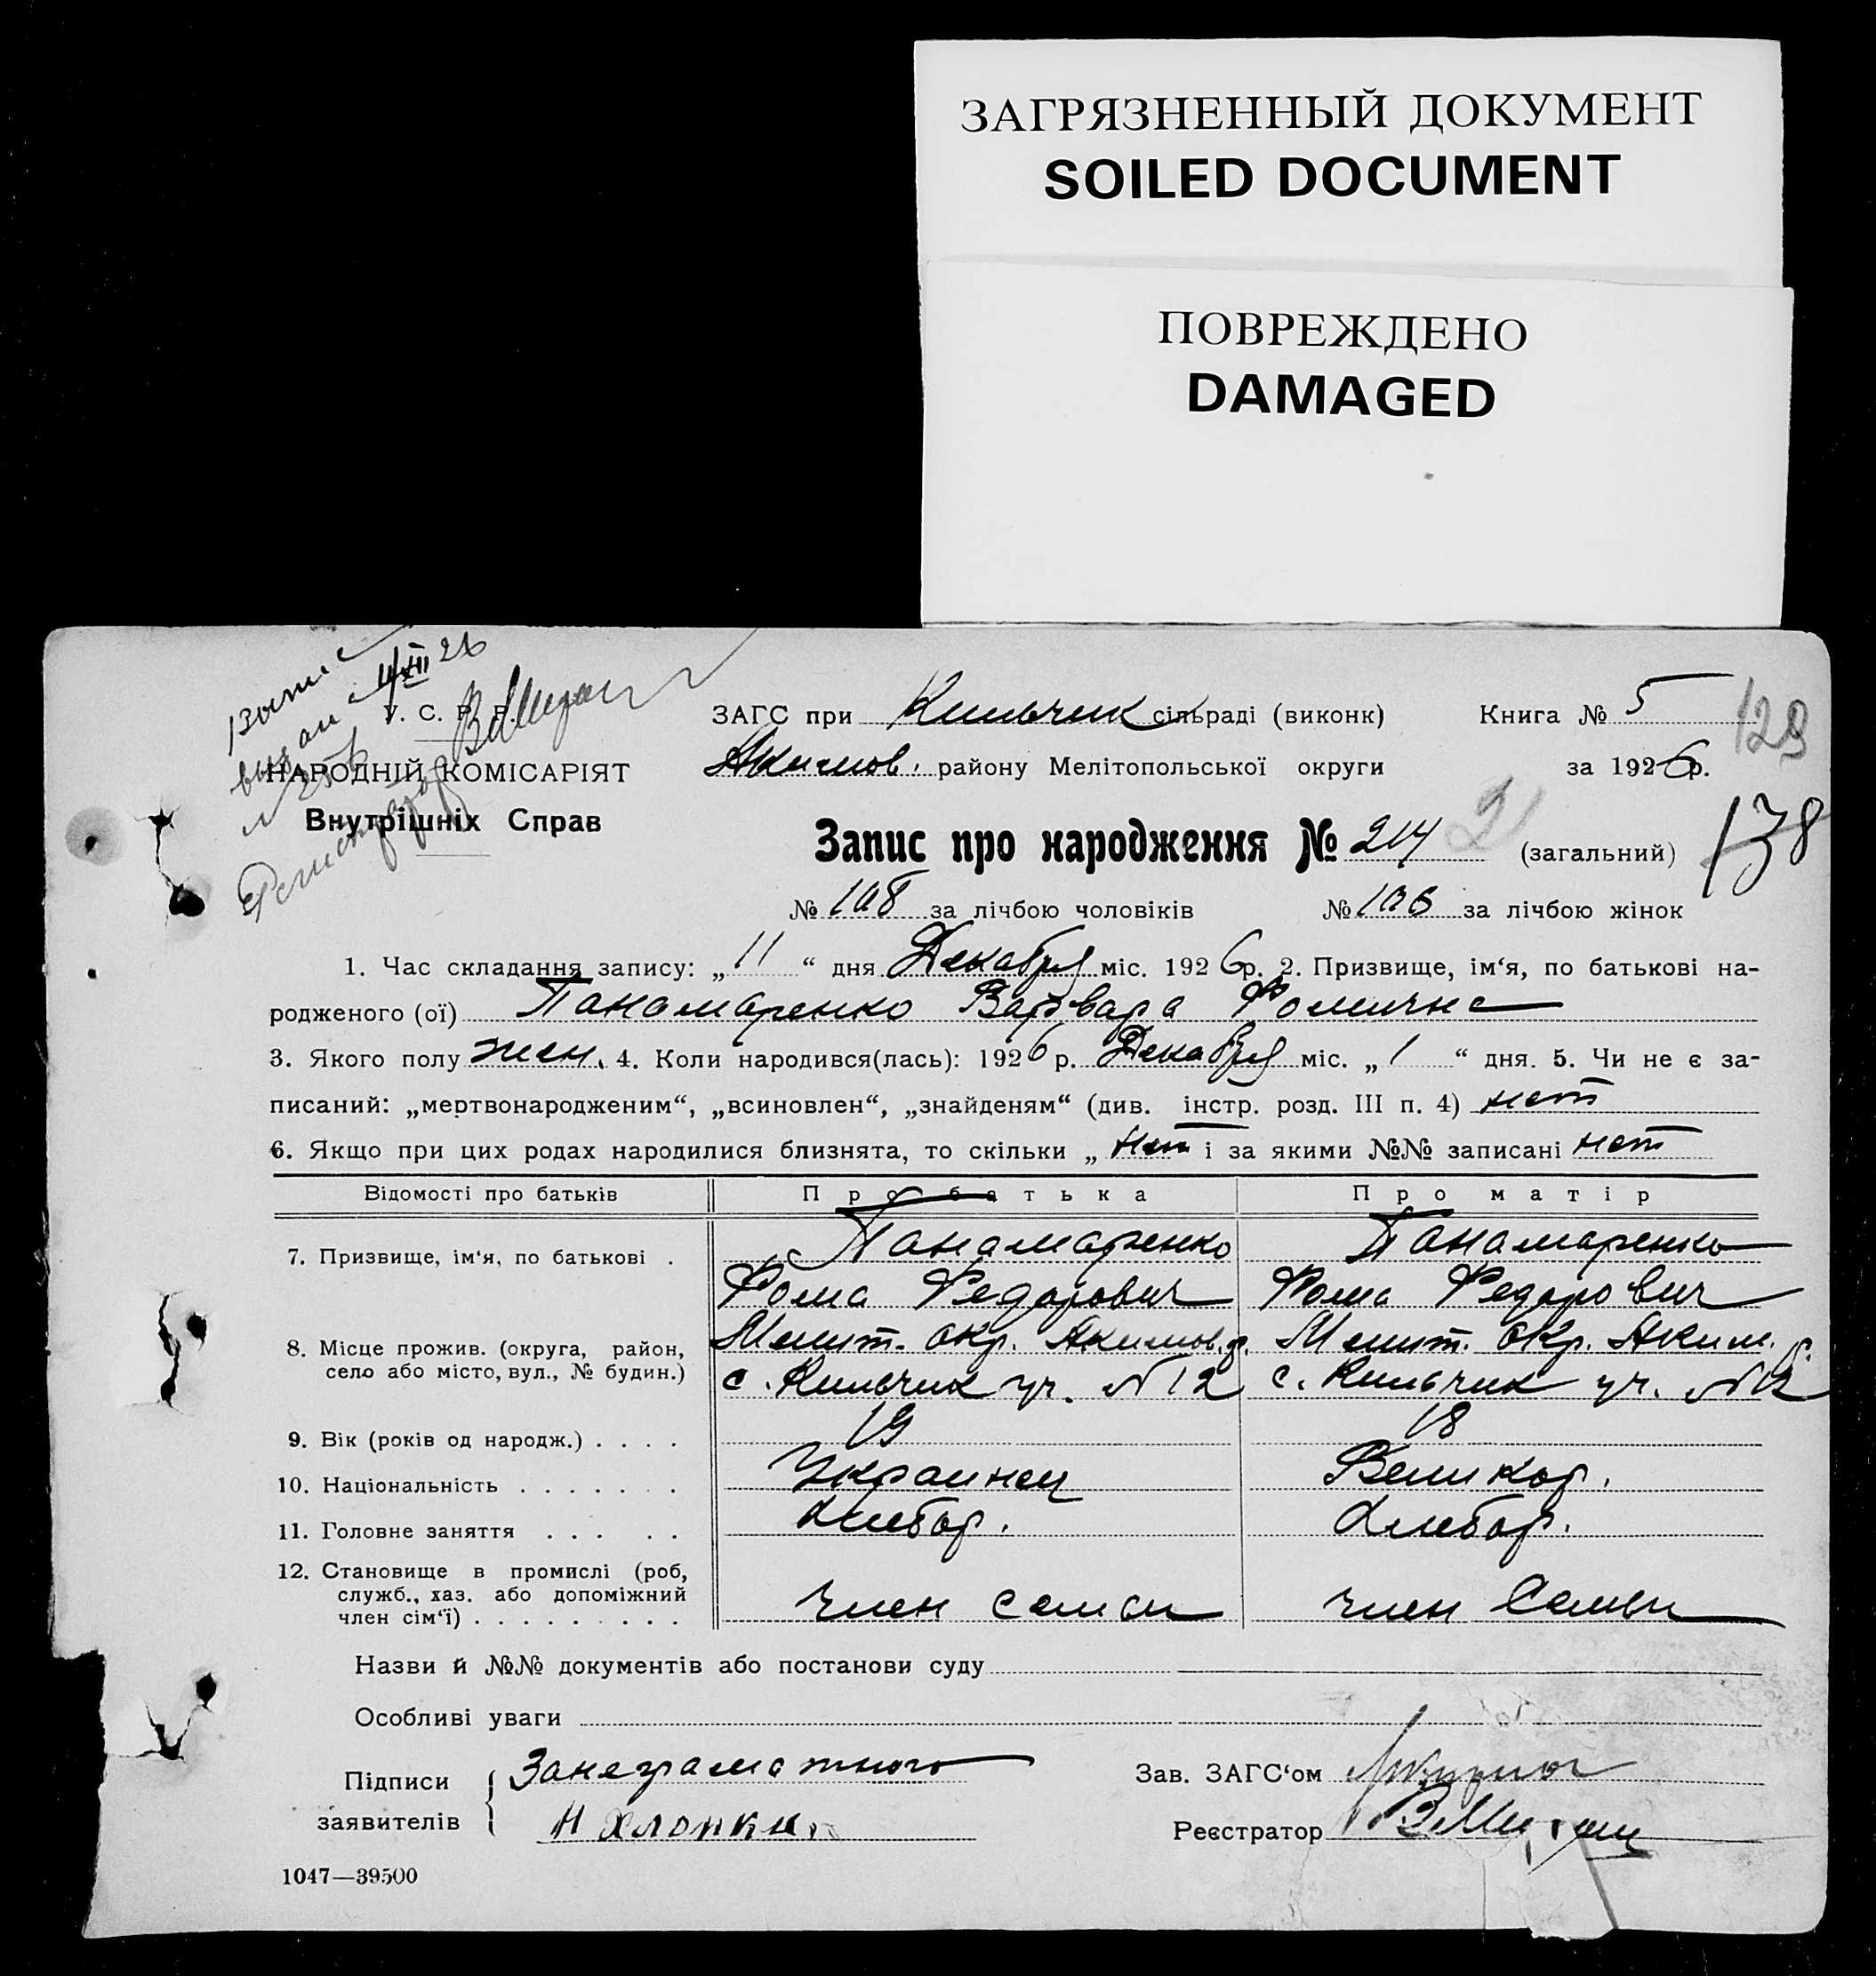 ЗАГРЯЗНЕННЫЙ ДОКУМЕНТ
SOILED DOCUMENT
ПОВРЕЖДЕНО
DAMAGED
11/XII 26
У. С. Р. Р.
НАРОДНІЙ КОМІСАРІЯТ
Внутрішніх Справ
ЗАГС при Кильчик сільраді (виконк) Книга № 5
129
Акимов. району Мелітопольської округи за 1926 р.
Запис про народження № 214 (загальний)
138
№ 108 за лічбою чоловіків № 106 за лічбою жінок
1. Час складання запису: „ 11 “ дня Декабря міс. 1926 р. 2. Призвище, ім‘я, по батькові на-
родженого (ої) Панамаренко Варвара Фомична
3. Якого полу жен. 4. Коли народився(лась): 1926 р. Декабря міс. „ 1 “ дня. 5. Чи не є за-
писаний: „мертвонародженим“, „всиновлен“, „знайденям“ (див. інстр. розд. III п. 4) нет
6. Якщо при цих родах народилися близнята, то скільки „ нет і за якими №№ записані нет
Відомості про батьків Про батька Про матір
7. Призвище, ім‘я, по батькові . Панамаренко Панамаренко
Фома Федорович Фома Федорович
8. Місце прожив. (округа, район, село або місто, вул., № будин.) Мелит. окр. Акимов. р. Мелит. Окр. Аким. р.
с. Кильчик уч. №12 с. Кильчик уч. №12
9. Вік (років од народж.) . . . . 19 18
10. Національність . . . . . . . Украинец Великор.
11. Головне заняття . . . . . Хлебор. Хлебор.
12. Становище в промислі (роб,
служб., хаз. або допоміжний
член сім‘ї) . . . . . . . . . член семьи член Семьи
Назви й №№ документів або постанови суду
Особливі уваги
Підписи Занеграмотного Зав. ЗАГС‘ом
заявителів Н Хлопки Реєстратор
1047—39500